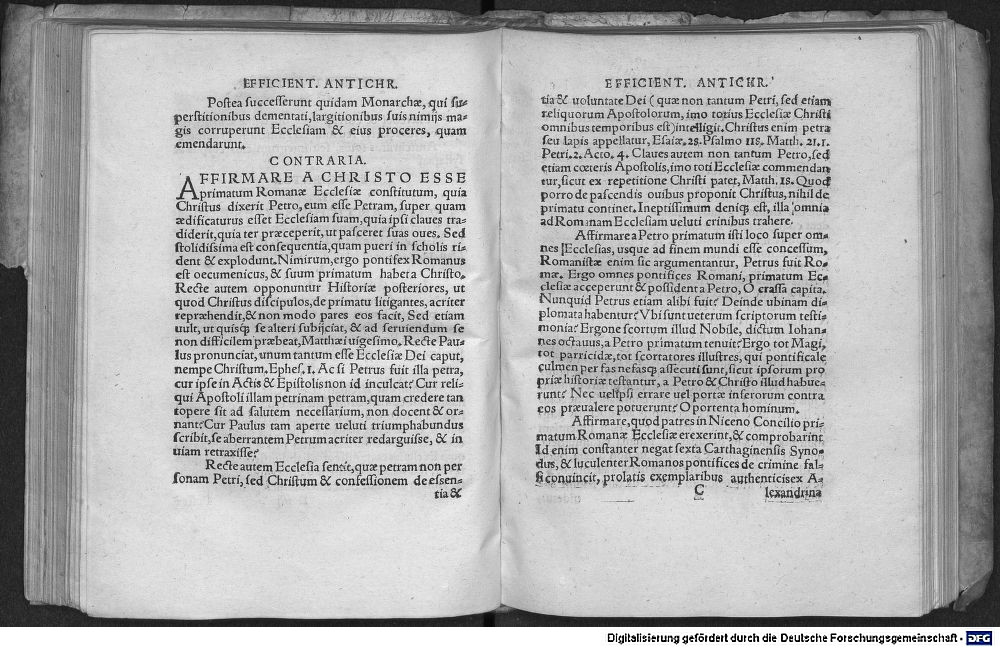 EFFICIENT. ANTICHR.
Postea successerunt quidam Monarchæ, qui su-
perstitionibus dementati, largitionibus suis nimijs ma-
gis corruperunt Ecclesiam & eius proceres, quam
emendarunt.
CONTRARIA.
AFFIRMARE A CHRISTO ESSE
primatum Romanæ Ecclesiæ constitutum, quia
Christus dixerit Petro, eum esse Petram, super quam
ædificaturus esset Ecclesiam suam, quia ipsi claues tra-
diderit, quia ter præceperit, ut pasceret suas oues. Sed
stolidissima est consequentia, quam pueri in scholis ri-
dent & explodunt. Nimirum, ergo pontifex Romanus
est oecumenicus, & suum primatum habet a Christo.
Recte autem opponuntur Historiæ posteriores, ut
quod Christus discipulos, de primatu litigantes, acriter
repræhendit, & non modo pares eos facit, Sed etiam
uult, ut quisq; se alteri subijciat, & ad seruiendum se
non difficilem præbeat, Matthæi uigesimo. Recte Pau-
lus pronunciat, unum tantum esse Ecclesiæ Dei caput,
nempe Christum. Ephes. 1. Ac si Petrus fuit illa petra,
cur ipse in Actis & Epistolis non id inculcat? Cur reli-
qui Apostoli illam petrinam petram, quam credere tan
topere sit ad salutem necessarium, non docent & or-
nant? Cur Paulus tam aperte ueluti triumphabundus
scribit, se aberrantem Petrum acriter redarguisse, & in
uiam retraxisse?
Recte autem Ecclesia sentit, quæ petram non per
sonam Petri, sed Christum & confessionem de essen-
tia &
EFFICIENT. ANTICHR.
tia & uoluntate Dei ( quæ non tantum Petri, sed etiam
reliquorum Apostolorum, imo totius Ecclesiæ Christi
omnibus temporibus est) intelligit. Christus enim petra
seu lapis appellatur, Esaiæ. 28. Psalmo 118. Matth. 21. 1.
Petri. 2. Acto. 4. Claues autem non tantum Petro, sed
etiam cœteris Apostolis, imo toti Ecclesiæ commendan
tur, sicut ex repetitione Christi patet, Matth. 18. Quod
porro de pascendis ouibus proponit Christus, nihil de
primatu continet. Ineptissimum deniq; est, illa omnia
ad Romanam Ecclesiam ueluti crinibus trahere.
Affirmare a Petro primatum isti loco super om-
nes Ecclesias, usque ad finem mundi esse concessum,
Romanistæ enim sic argumentantur, Petrus fuit Ro-
mæ. Ergo omnes pontifices Romani, primatum Ec-
clesiæ acceperunt & possident a Petro, O crassa capita.
Nunquid Petrus etiam alibi fuit? Deinde ubinam di-
plomata habentur? Vbi sunt ueterum scriptorum testi-
monia? Ergone scortum illud Nobile, dictum Iohan-
nes octauus, a Petro primatum tenuit? Ergo tot Magi,
tot parricidæ, tot scortatores illustres, qui pontificale
culmen per fas nefasq; assecuti sunt, sicut ipsorum pro
priæ historiæ testantur, a Petro & Christo illud habue-
runt? Nec uel ipsi errare uel portæ inferorum contra
eos præualere potuerunt? O portenta hominum.
Affirmare, quod patres in Niceno Concilio pri-
matum Romanæ Ecclesiæ erexerint, & comprobarint
Id enim constanter negat sexta Carthaginensis Syno-
dus, & luculenter Romanos pontifices de crimine fal-
si conuincit, prolatis exemplaribus authenticis ex A-
C lexandrina
Digitalisierung gefördert durch die Deutsche Forschungsgemeinschaft - DFG